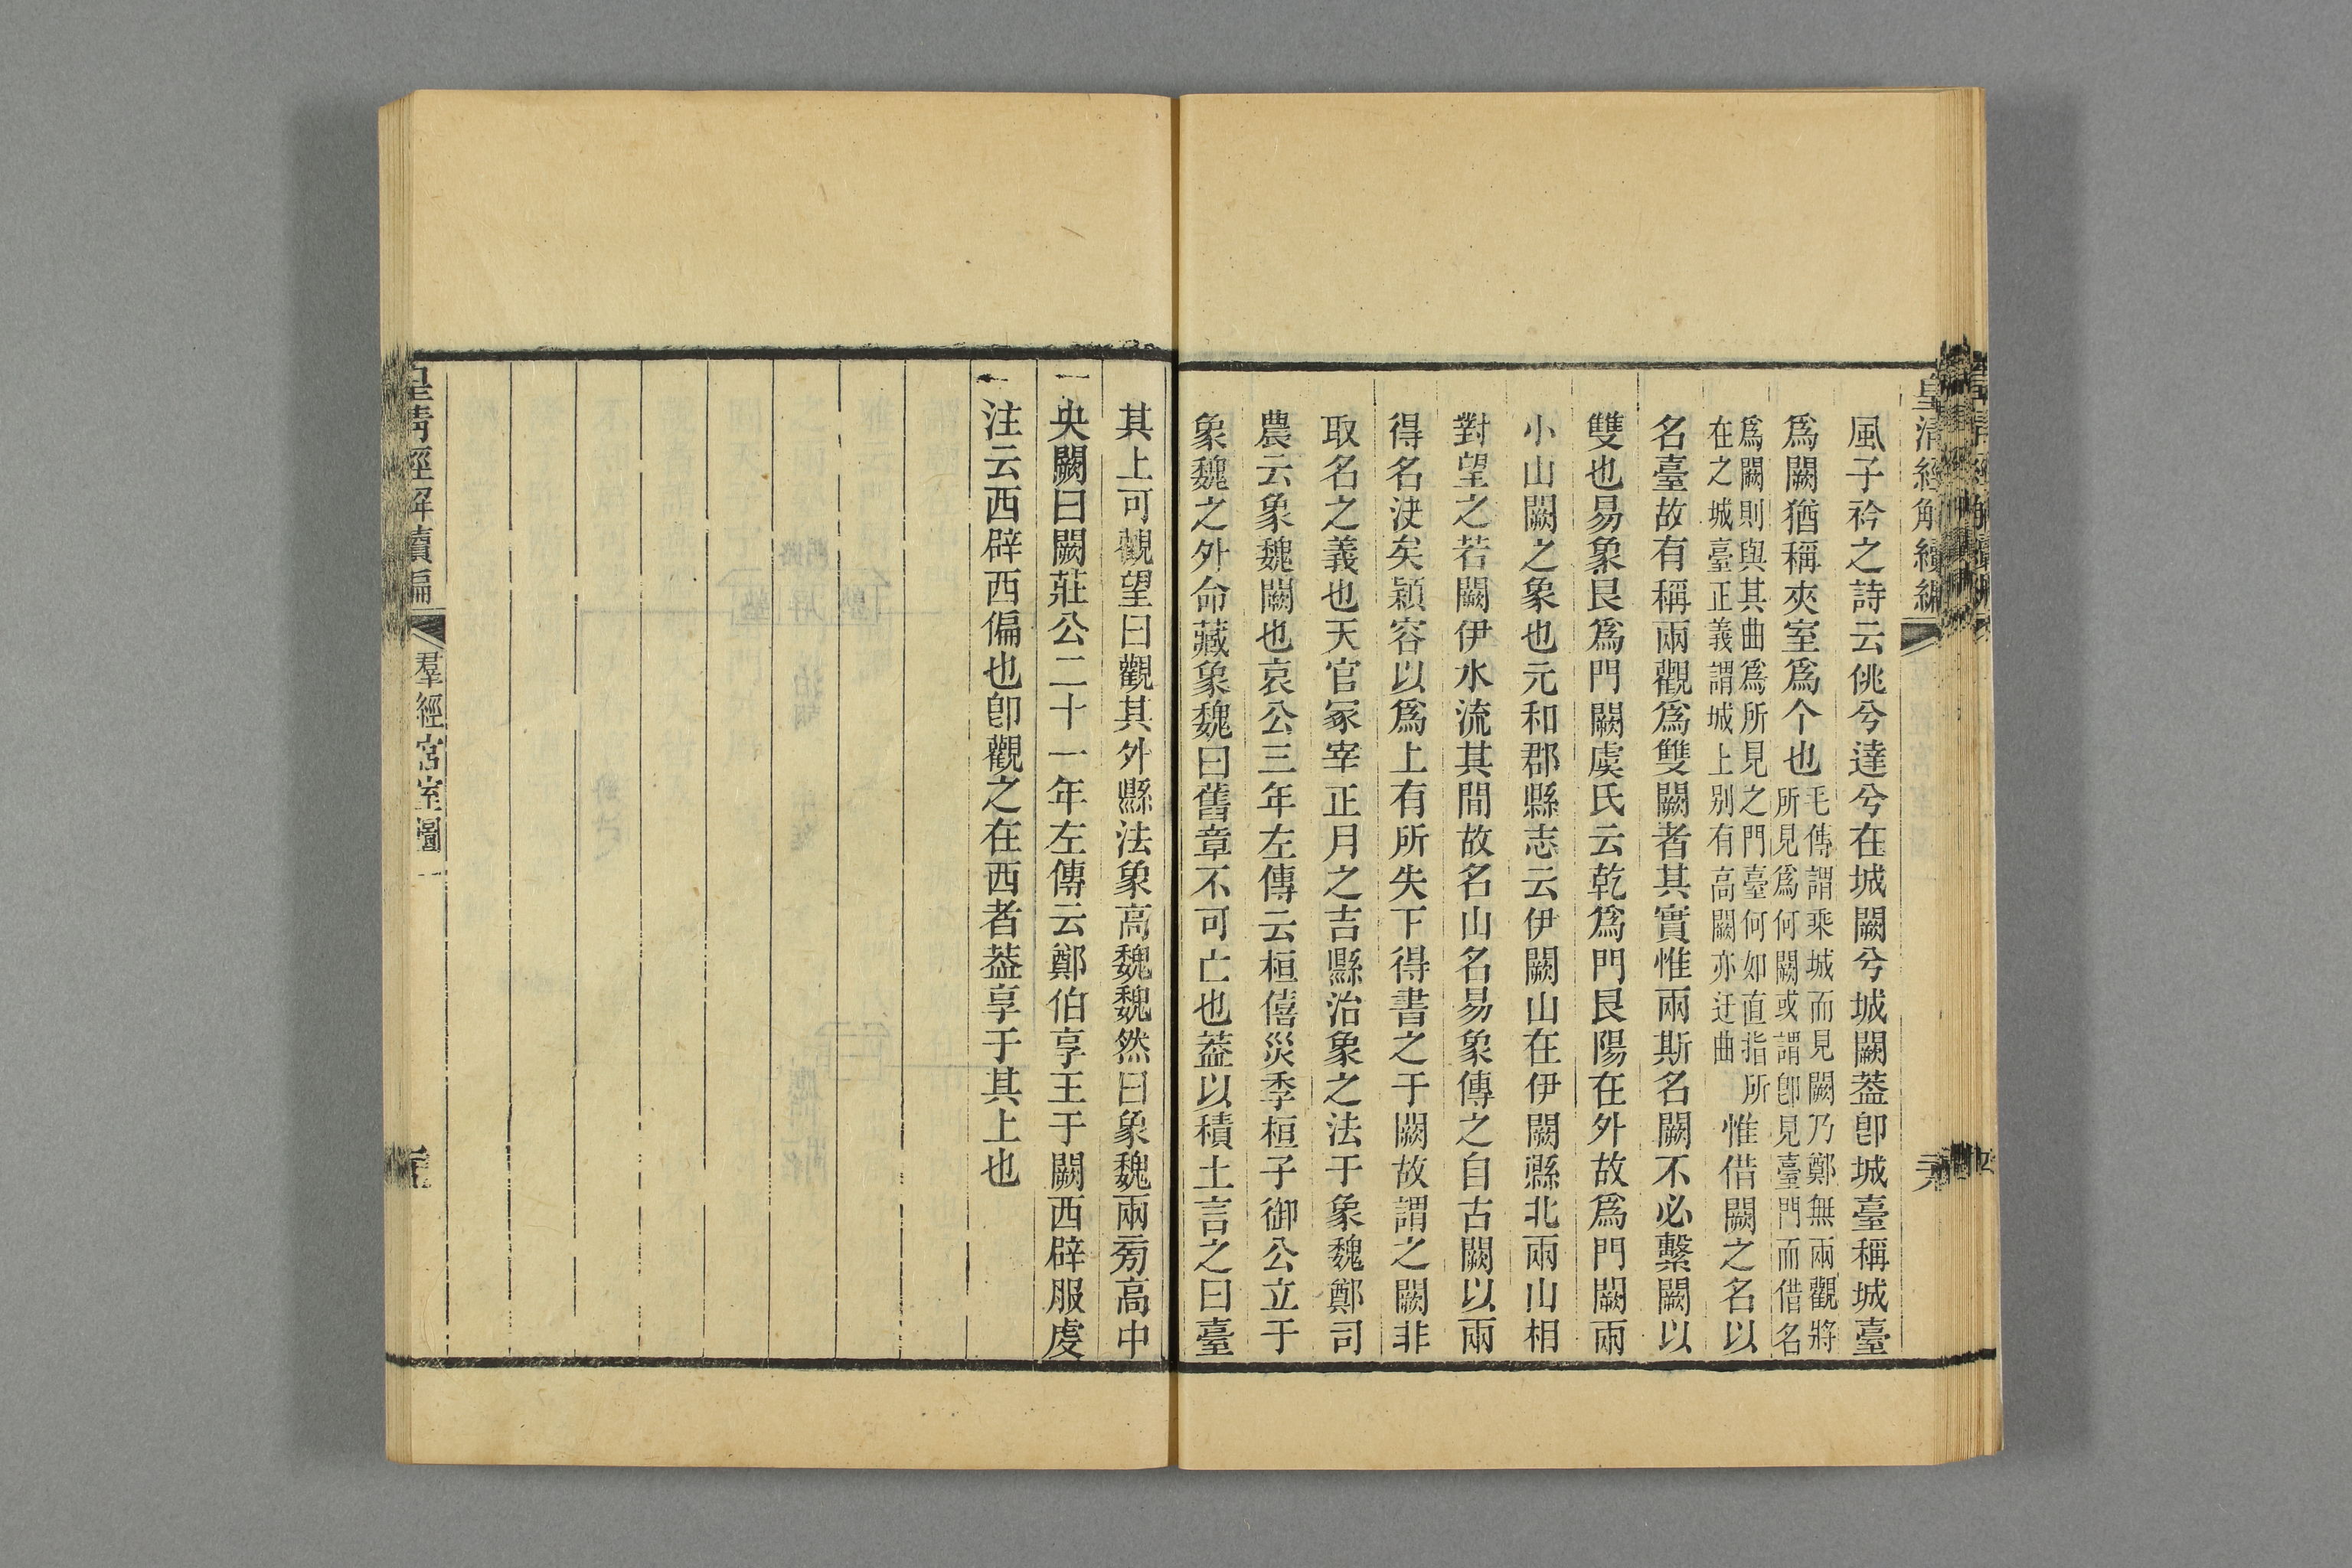 皇清經解續編
风子衿之詩云佻兮達兮在城闕兮城闕葢卽城臺稱城臺
爲闕猶稱夾室爲个也毛傳謂乘城而見闕乃鄭無兩觀將
所見爲何闕或謂卽見臺門而借名
爲闕則與其曲爲所見之門臺何如直指所
在之城臺正義謂城上别有高闕亦迂曲惟借闕之名以
名臺故有稱兩觀爲雙闕者其實惟兩斯名闕不必繫闕以
雙也易象艮爲門闕虞氏云乾爲門艮陽在外故爲門闕兩
小山闕之象也元和郡縣志云伊闕山在伊闕縣北兩山相
對望之若闕伊水流其閒故名山名易象傳之自古闕以兩
得名決矣穎容以爲上有所失下得書之于闕故謂之闕非
取名之義也天官冢宰正月之吉縣治象之法于象魏鄭司
農云象魏闕也哀公三年左傳云桓僖災季桓子御公立于
象魏之外命藏象魏曰舊章不可亡也葢以積土言之曰臺
其上可觀望曰觀其外縣法象高魏魏然曰象魏兩旁高中
央闕曰闕莊公二十一年左傳云鄭伯享王于闕西辟服虔
注云西辟西偏也卽觀之在西者葢享于其上也
皇清經解續編
羣經宮室圖一